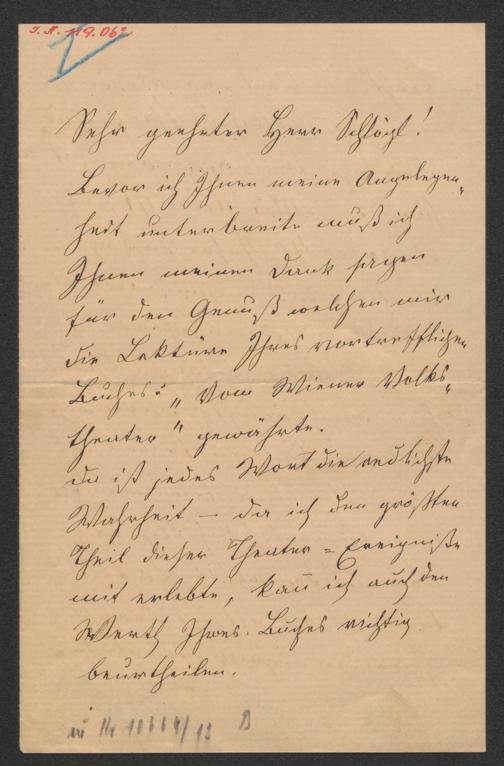 I. N. 119.062
Sehr geehrter Herr Schlögl!
Bevor ich Ihnen meine Angelegen„
heit unterbreite muß ich
Ihnen meinen Dank sagen
für den Genuß welchen mir
die Lektüre Ihres vortrefflichen
Buches: „Vom Wiener Volks„
theater" gewährte.
Da ist jedes Wort die redlichste
Wahrheit – da ich den größten
Theil dieser Theater = Ereigniße
mit erlebte, kan̄ ich auch den
Werth Ihres Buches richtig
beurtheilen.